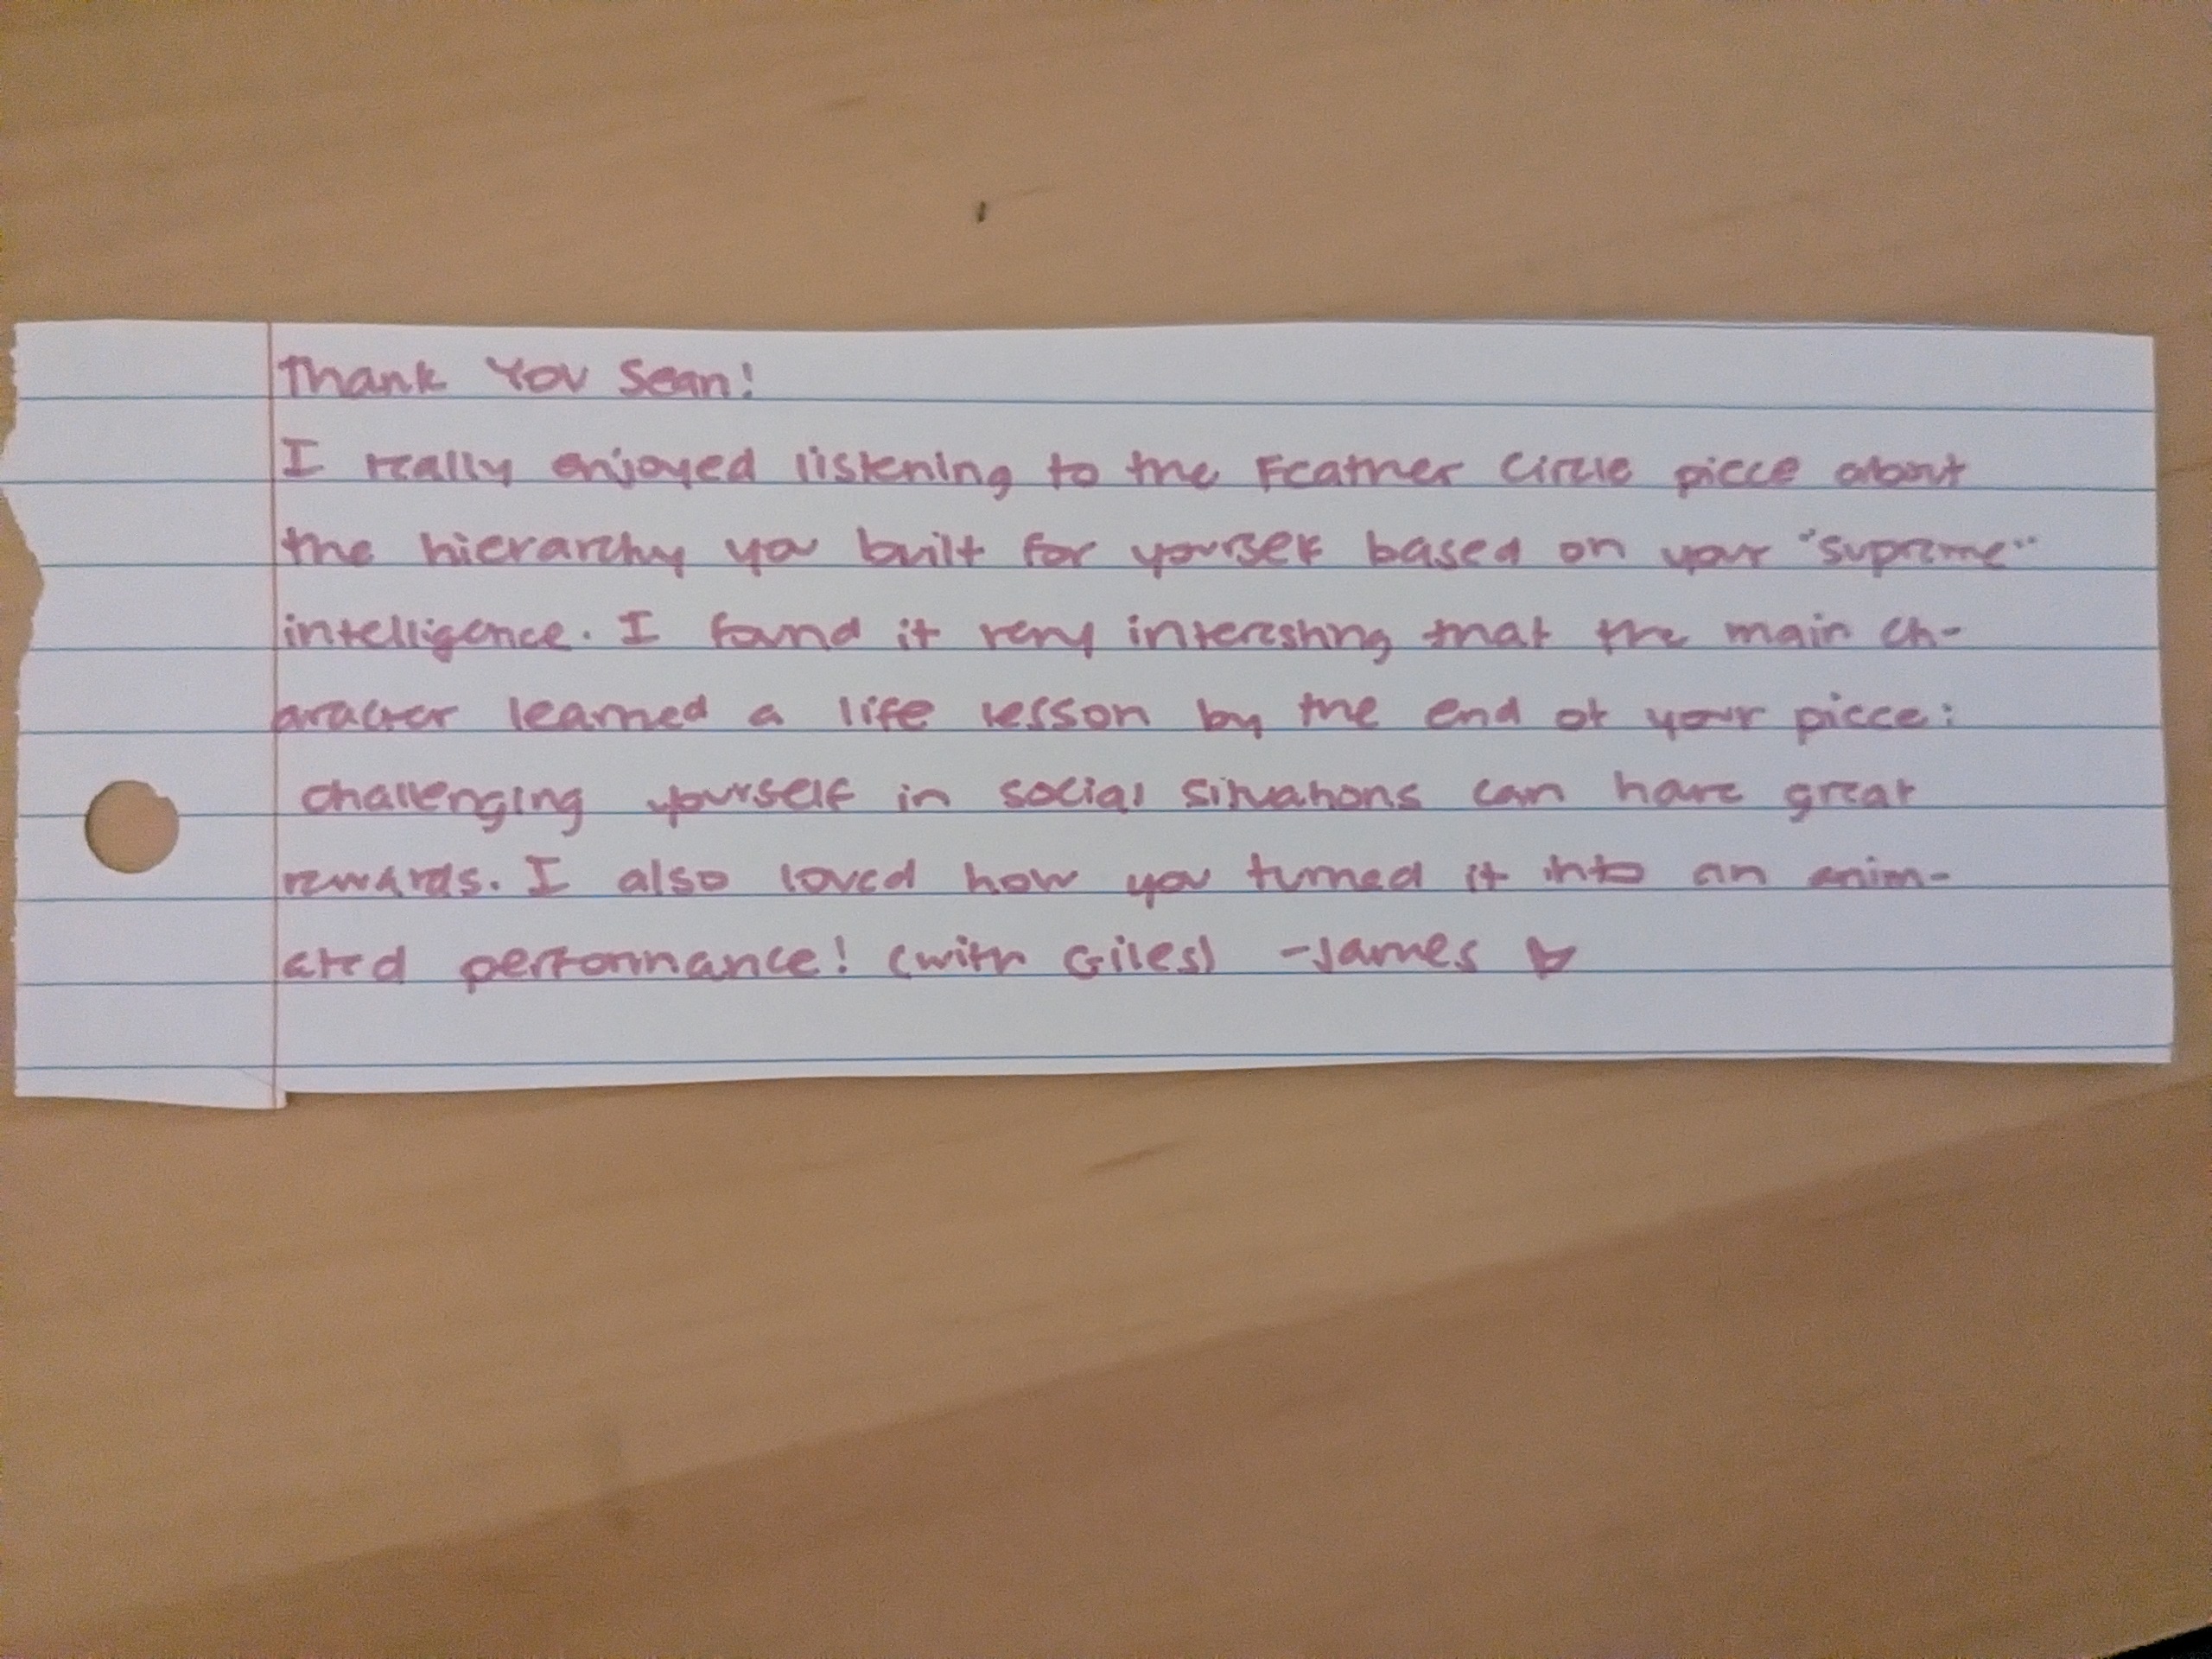 Thank You Sean!
I really enjoyed listening to the Feather Circle piece about
the hierarchy you built for yourself based on your "supreme"
intelligence. I found it very interesting that the main ch-
aracter learned a life lesson by the end of your piece:
challenging yourself in social situations can have great
rewards. I also loved how you turned it into an anim-
ated performance! (with Giles) -James